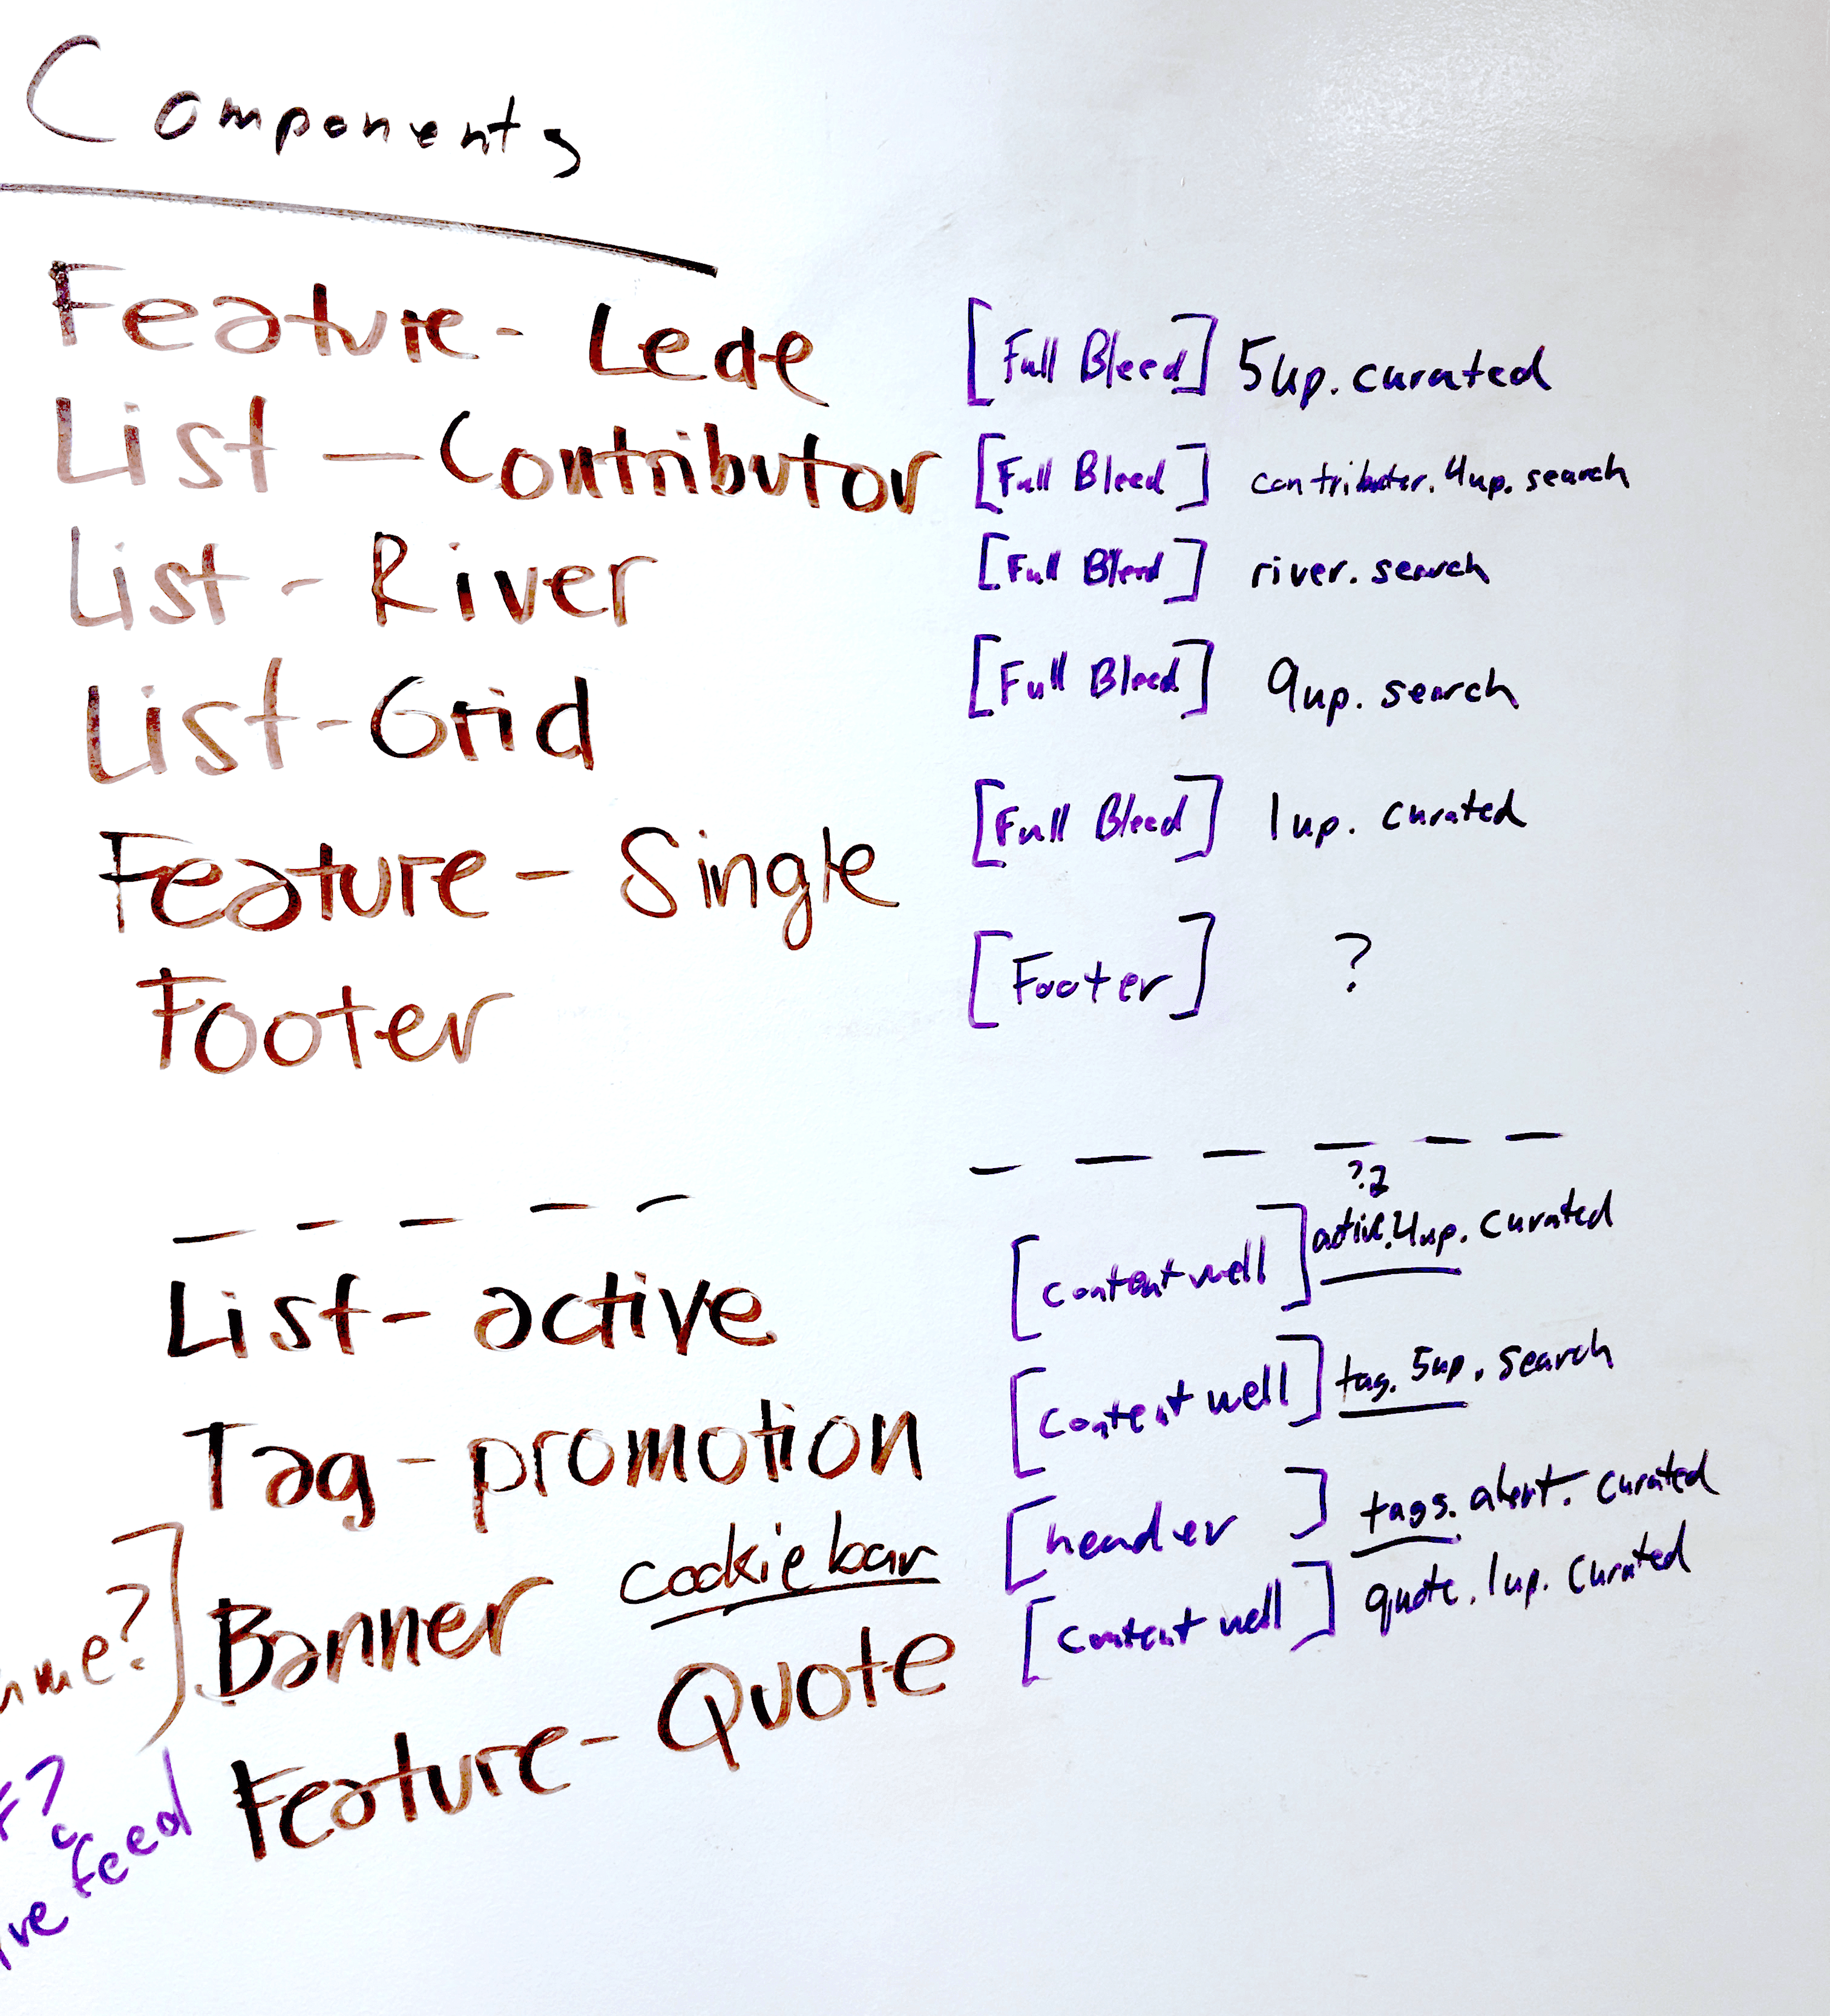 Components
Feature - Lede [Full Bleed] 5up. curated
List - Contributor [Full Bleed] contributor. 4up. search
List - River [Full Bleed] river. search
List - Grid [Full Bleed] 9up. search
Feature - Single [Full Bleed] 1up. curated
Footer [Footer] ?
??
List - active [content well] active. 4up. curated
Tag - promotion [content well] tag. 5up. search
Banner cookie bar [header] tags. alert. curated
Feature - Quote [content well] quote. 1up. curated
?]
?
feed